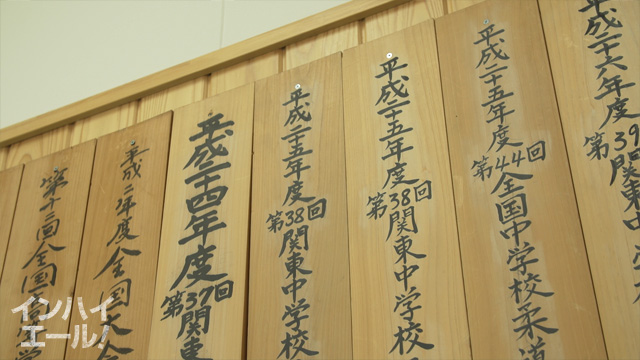 平成二十六年度
第39回関東中
平成二十五年度
第44回全国中学校柔道
平成二十五年度
第38回関東中学校
平成二十五年度
第38回関東中学校
平成二十四年度
第37回関東
平成二年度全国大会
第十二回全国
インハイ
エール!